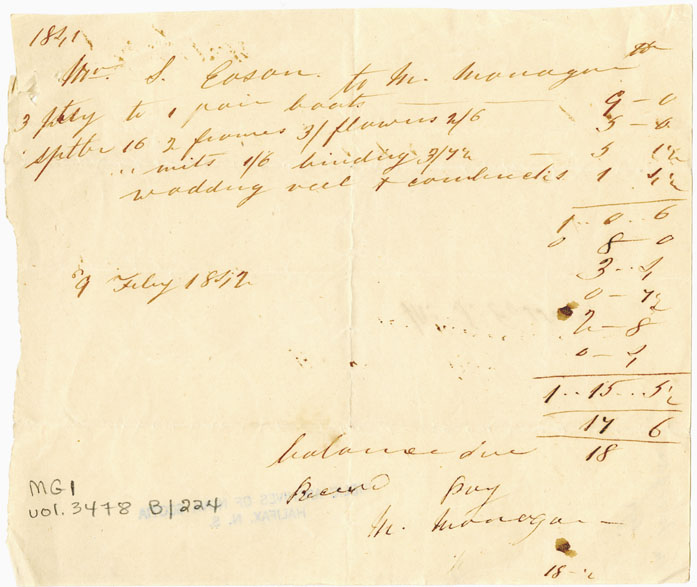 1841
Mr. S. Eason to M. Monagan Dr
3 to 1 pair boots 9 - 0
sptbr 16 2 frames 3/ flowers 2/6 5 - 6
" mits 1/6 binding 3/7½ - 5 1½
wadding veil & 1 4½
1 .. 0 .. 6
0 8 - 0
3 .. 4
9 Feby 1842
0 - 7½
2 - 8
0 - 4
1 .. 15 .. 5½
17 6
balance due 18
Pay
M. Monagan
18 -
MG1
vol. 3478 B/224
ARCHIVES OF NOVA SCOTIA
HALIFAX, N. S.